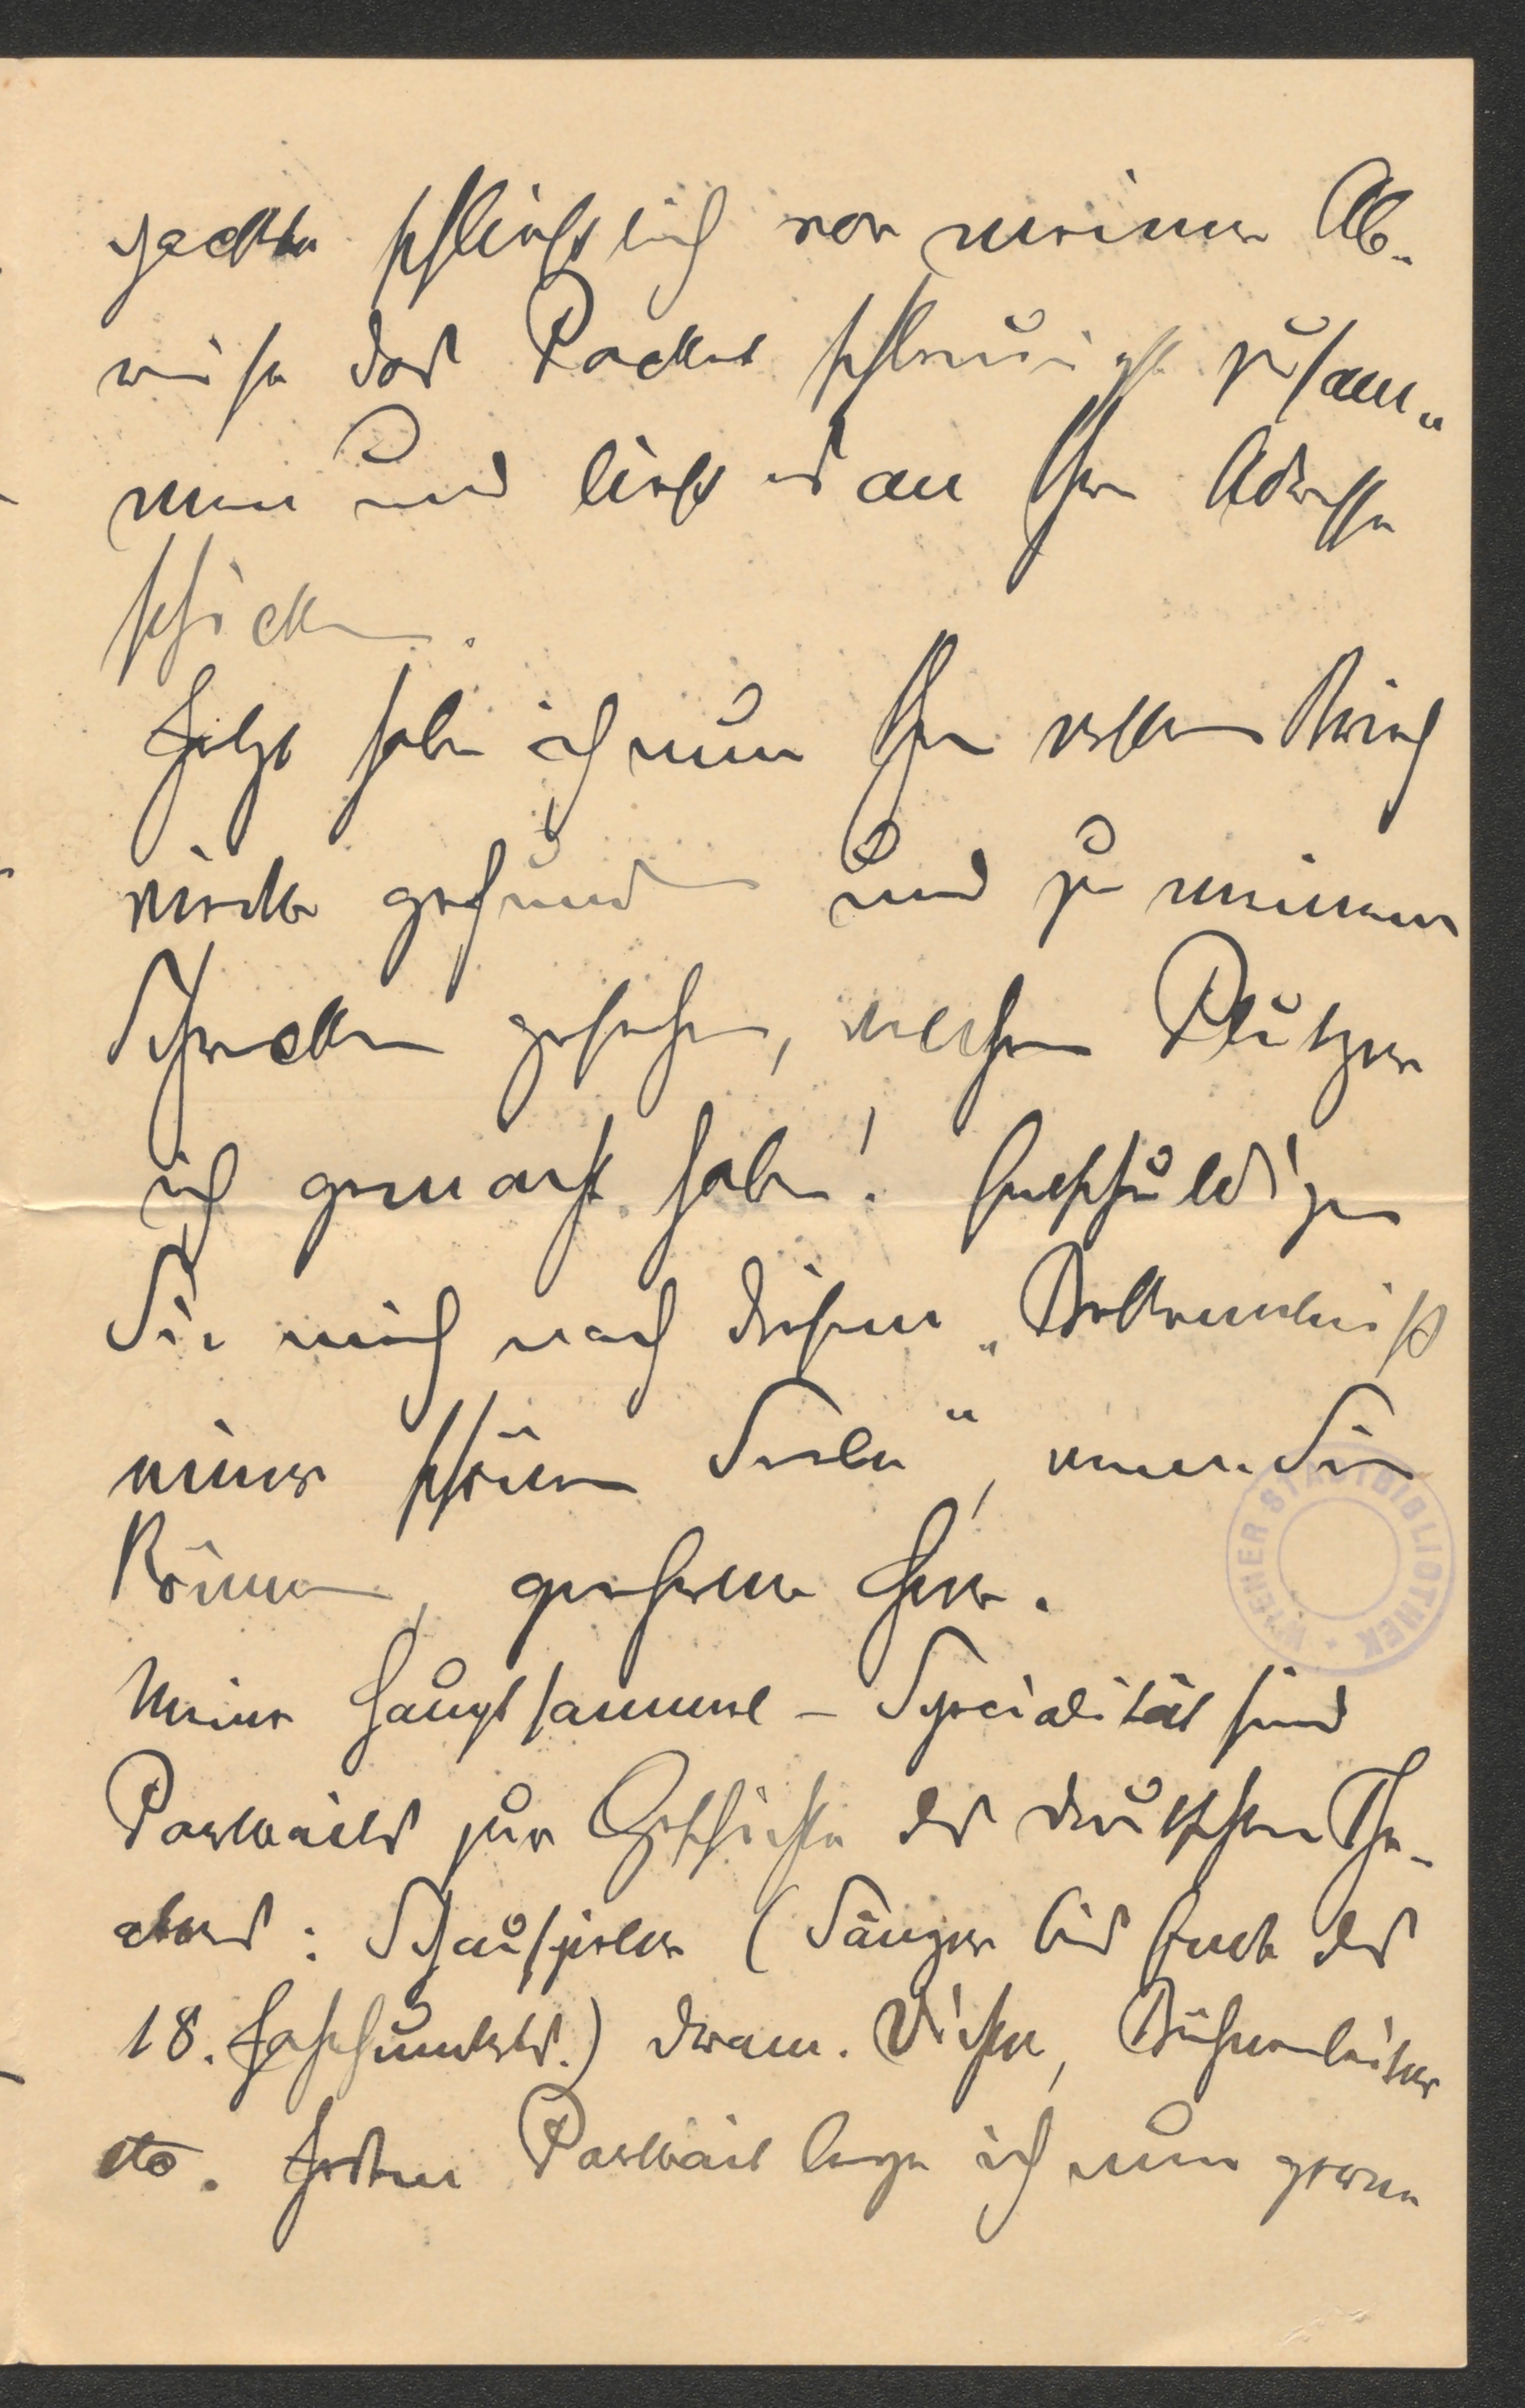 packte schließlich vor meiner Ab-
reise das Packet schleunigst zusam-
men und ließ es an Ihre Adresse
schicken.
Jetzt habe ich nun Ihren ersten Brief
wieder gefunden und zu meinem
Schrecken gesehen, welchen Plützer
ich gemacht habe! Entschuldigen
Sie mich nach diesem „Bekenntniß
einer schönen Seele“, wenn Sie
können, geehrter Herr.
Meine Hauptsammel-Specialität sind
Portraits zur Geschichte des deutschen The-
aters: Schauspieler (Sänger bis Ende des
18. Jahrhunderts.) dram. Dichter, Bühnenleiter
etc. Jedem Portrait lege ich nun gerne
WIENER STADTBIBLIOTHEK